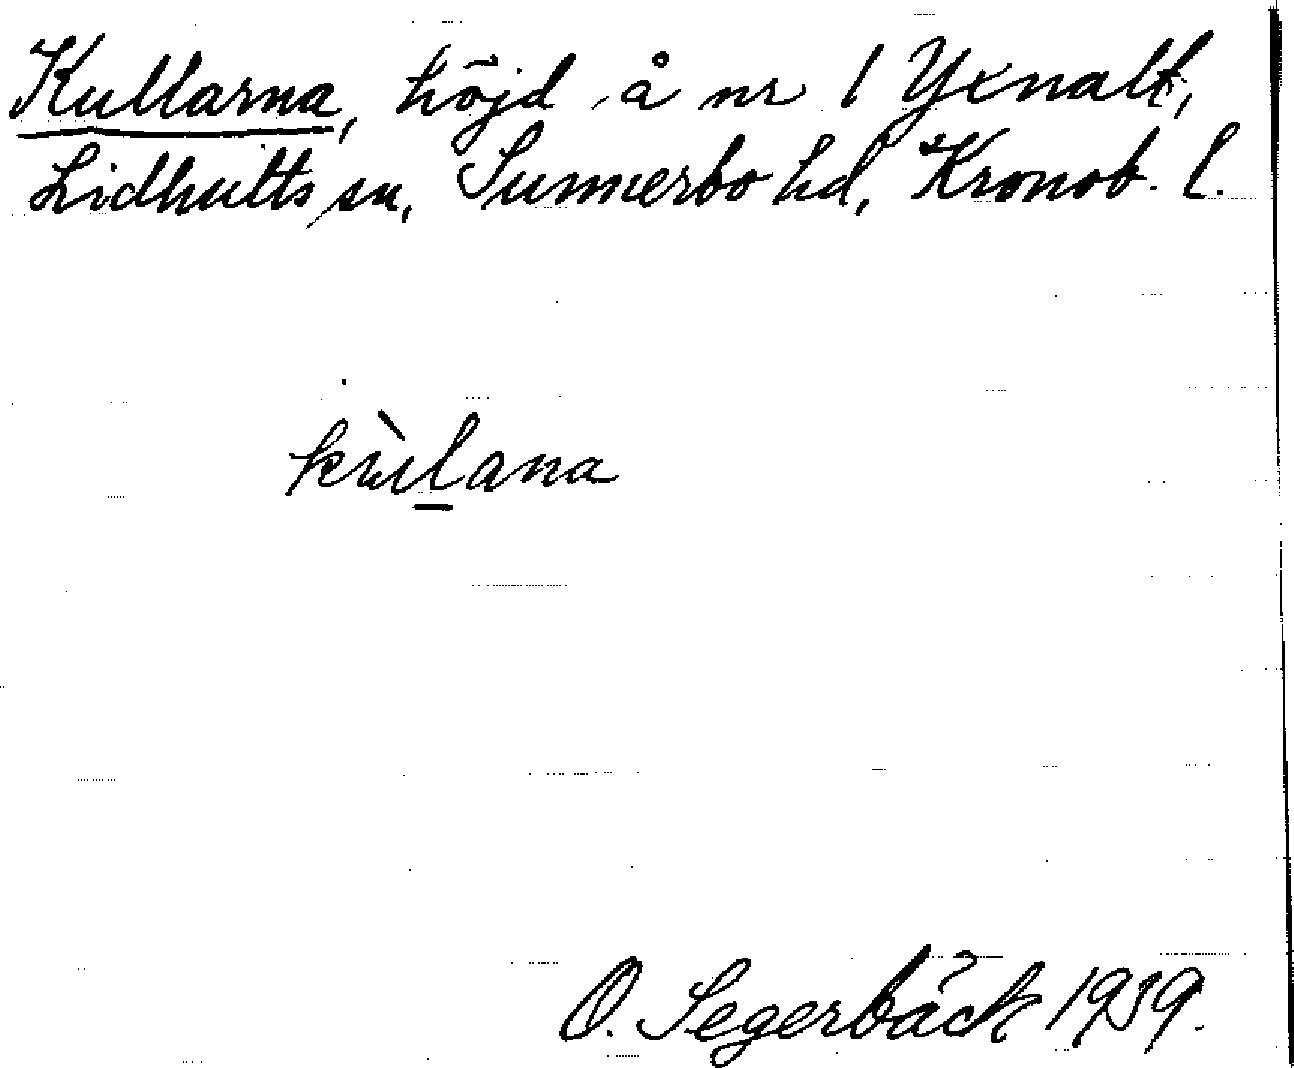 Kullarna, höjd å nr 1 Yxnalt,
Lidhults sn, Sunnerbo hd, Kronob. l.
kùlana
O. Segerbäck 1939.